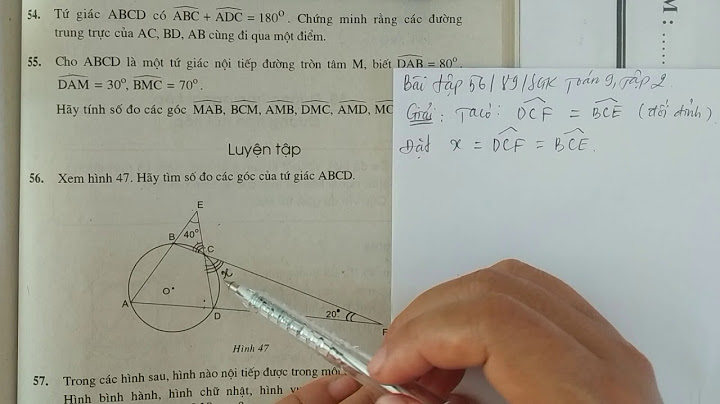 54. Tứ giác ABCD có ABC + ADC = 180°. Chứng minh rằng các đường
trung trực của AC, BD, AB cùng đi qua một điểm.
55. Cho ABCD là một tứ giác nội tiếp đường tròn tâm M, biết DAB = 80°,
DAM = 30°, BMC = 70°.
Hãy tính số đo các góc MAB, BCM, AMB, DMC, AMD, MC
Luyện tập
56. Xem hình 47. Hãy tìm số đo các góc của tứ giác ABCD.
E
B 40° C
x
O
A
D
20°
F
Hình 47
57. Trong các hình sau, hình nào nội tiếp được trong
Hình bình hành, hình chữ nhật, hình
Bài tập 56/89/SGK Toán 9, Tập 2.
Giải: Ta có: DCF = BCE (đối đỉnh)
Đặt x = DCF = BCE.
M: